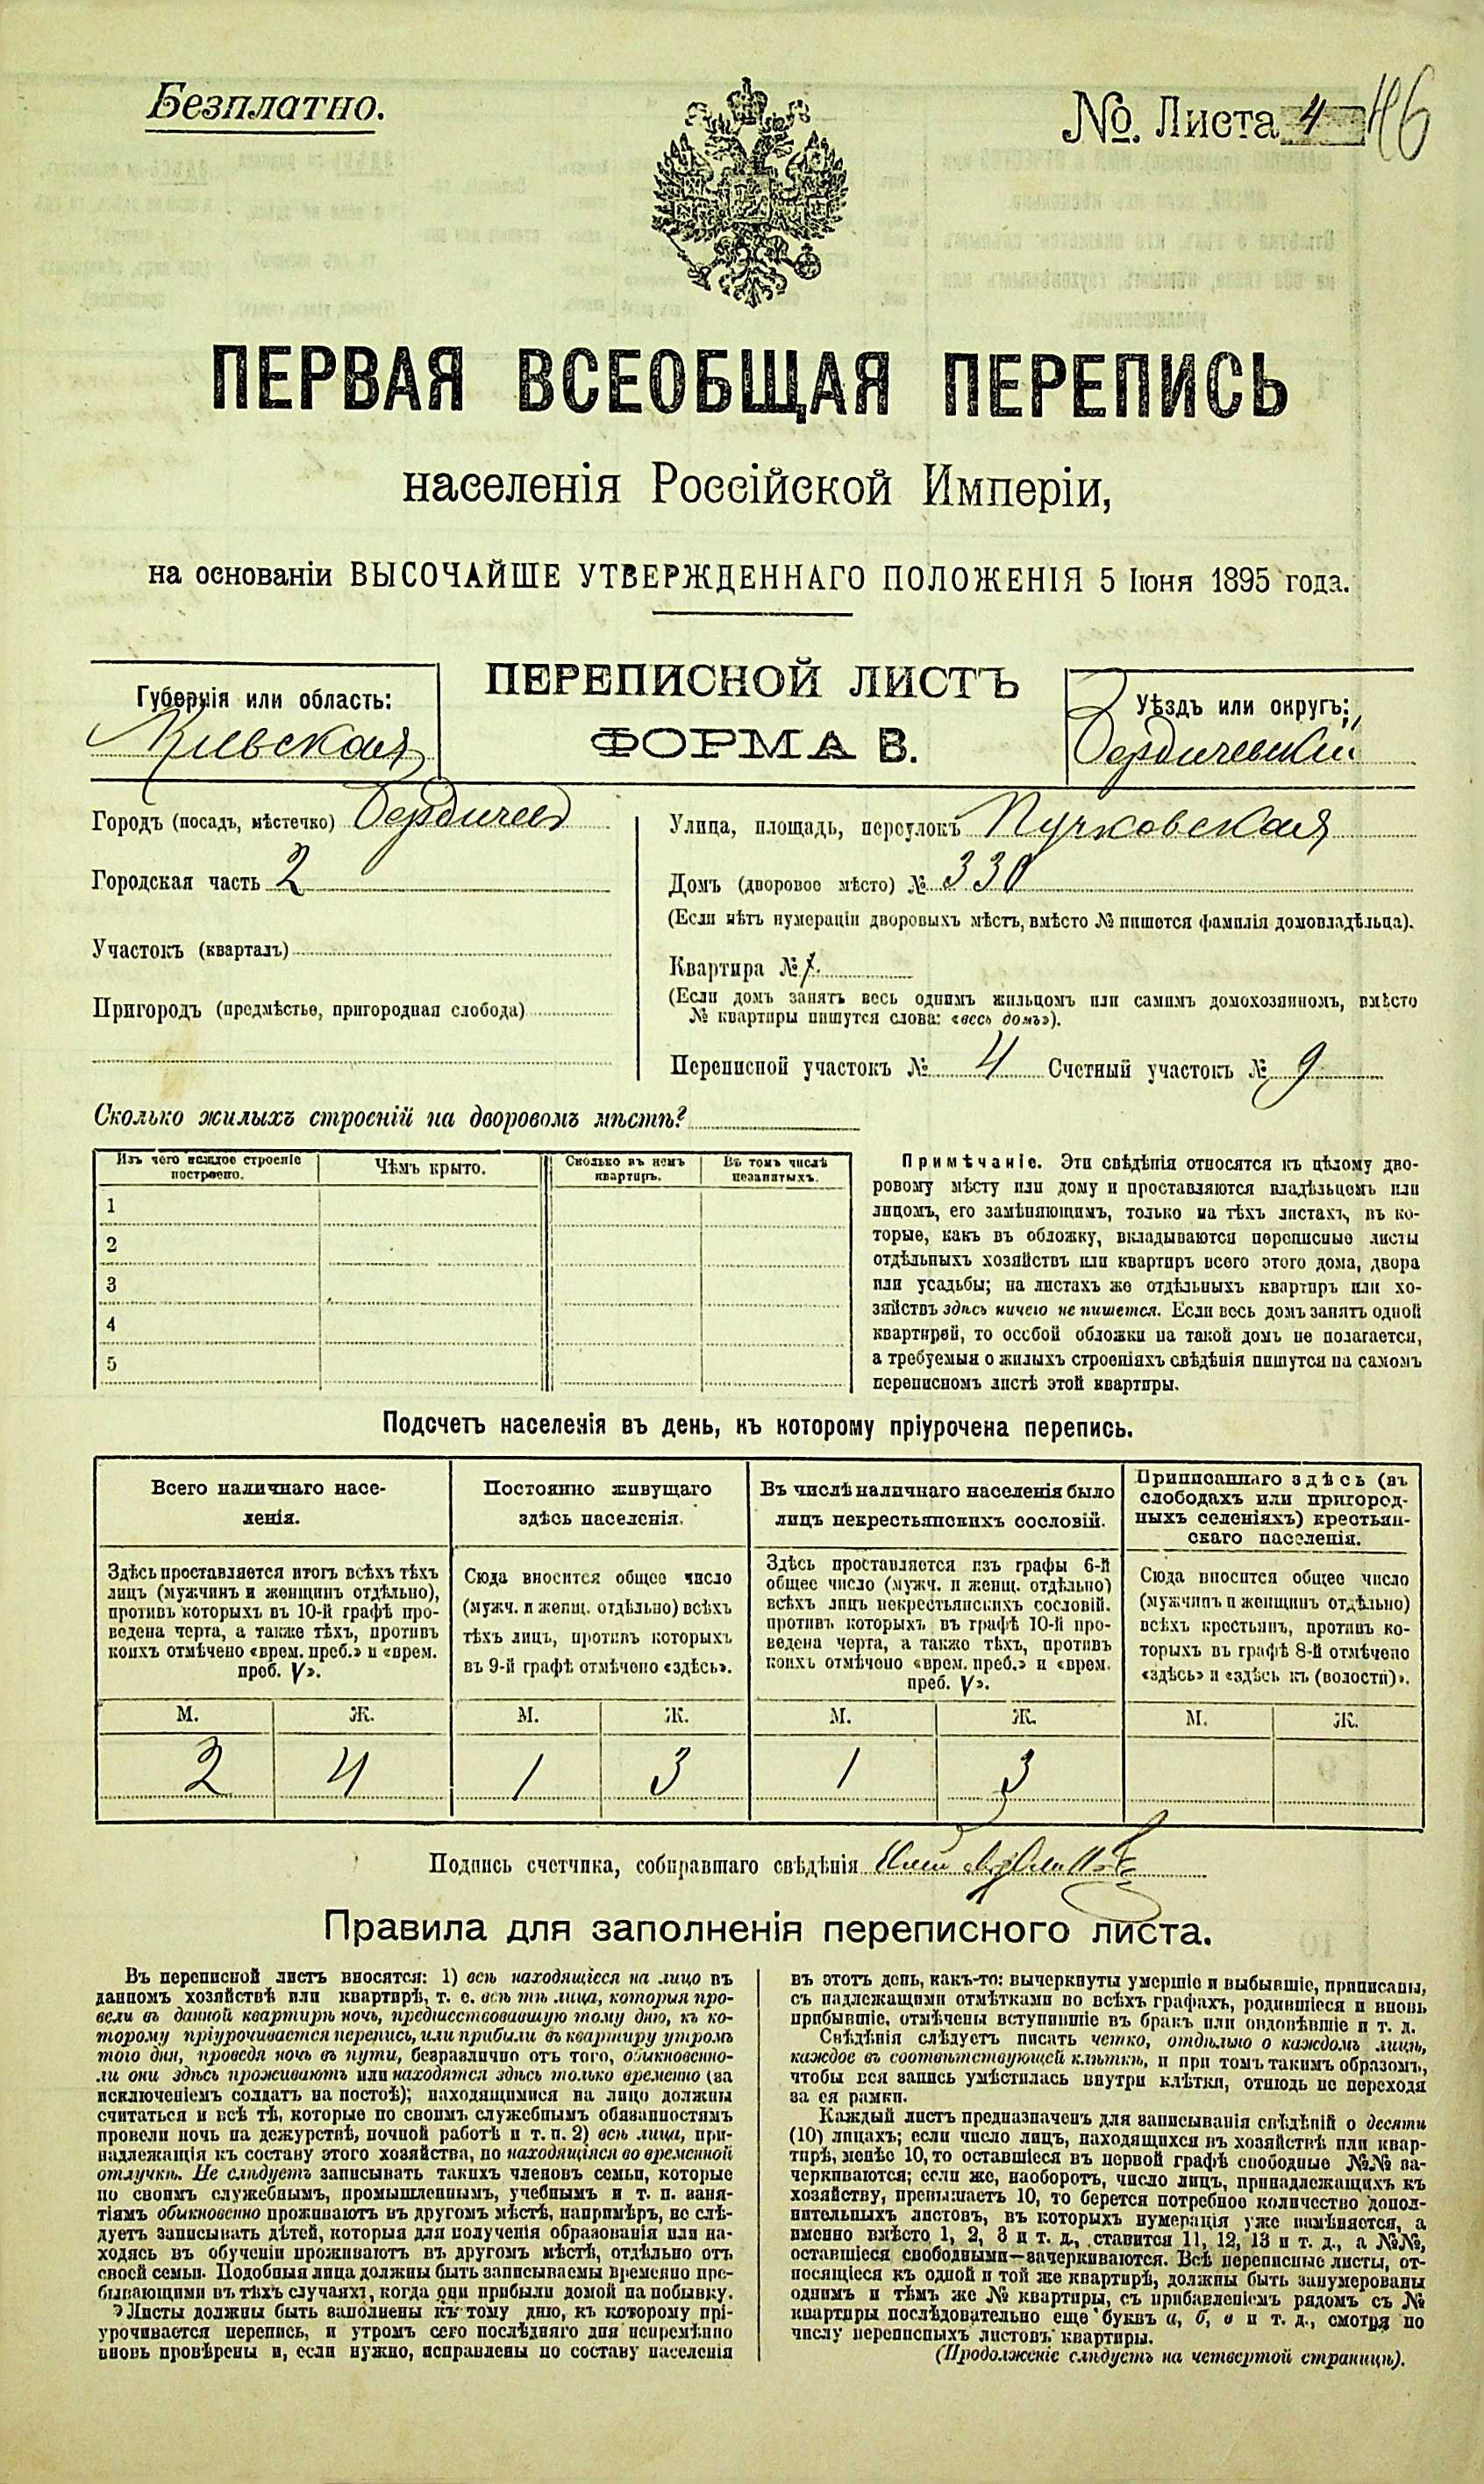 Безплатно.
№. Листа 4 46
ПЕРВАЯ ВСЕОБЩАЯ ПЕРЕПИСЬ
населенія Россійской Имперіи,
на основаніи ВЫСОЧАЙШЕ УТВЕРЖДЕННАГО ПОЛОЖЕНІЯ 5 Іюня 1895 года.
Губернія или область:
Киевская
ПЕРЕПИСНОЙ ЛИСТЪ
ФОРМА В.
Уѣздъ или округъ:
Бердичевский
Городъ (посадъ, мѣстечко) Бердичев
Городская часть 2
Участокъ (кварталъ)
Пригородъ (предмѣстье, пригородная слобода)
Улица, площадь, переулокъ Пучковская
Домъ (дворовое мѣсто) № 330
(Если нѣтъ нумераціи дворовыхъ мѣстъ, вмѣсто № пишется фамилія домовладѣльца).
Квартира №
(Если домъ занятъ весь однимъ жильцомъ или самимъ домохозяиномъ, вмѣсто
№ квартиры пишутся слова: «весь домъ»).
Переписной участокъ № 4 Счетный участокъ № 9
Сколько жилыхъ строеній на дворовомъ мѣстѣ?
Изъ чего каждое строеніе
построено.
Чѣмъ крыто.
Сколько въ немъ
квартиръ.
Въ томъ числѣ
незанятыхъ.
1
2
3
4
5
Примѣчаніе. Эти свѣдѣнія относятся къ цѣлому дво-
ровому мѣсту или дому и проставляются владѣльцемъ или
лицомъ, его замѣняющимъ, только на тѣхъ листахъ, въ ко-
торые, какъ въ обложку, вкладываются переписные листы
отдѣльныхъ хозяйствъ или квартиръ всего этого дома, двора
или усадьбы; на листахъ же отдѣльныхъ квартиръ или хо-
зяйствъ здѣсь ничего не пишется. Если весь домъ занятъ одной
квартирой, то особой обложки на такой домъ не полагается,
а требуемыя о жилыхъ строеніяхъ свѣдѣнія пишутся на самомъ
переписномъ листѣ этой квартиры.
Подсчетъ населенія въ день, къ которому пріурочена перепись.
Всего наличнаго насе-
ленія.
Здѣсь проставляется итогъ всѣхъ тѣхъ
лицъ (мужчинъ и женщинъ отдѣльно),
противъ которыхъ въ 10-й графѣ про-
ведена черта, а также тѣхъ, противъ
коихъ отмѣчено «врем. преб.» и «врем.
преб. V».
М. Ж.
2 4
Постоянно живущаго
здѣсь населенія.
Сюда вносится общее число
(мужч. и женщ. отдѣльно) всѣхъ
тѣхъ лицъ, противъ которыхъ
въ 9-й графѣ отмѣчено «здѣсь».
М. Ж.
1 3
Въ числѣ наличнаго населенія было
лицъ некрестьянскихъ сословій.
Здѣсь проставляется изъ графы 6-й
общее число (мужч. и женщ. отдѣльно)
всѣхъ лицъ некрестьянскихъ сословій.
противъ которыхъ въ графѣ 10-й про-
ведена черта, а также тѣхъ, противъ
коихъ отмѣчено «врем. преб.» и «врем.
преб. V».
М. Ж.
1 3
Приписаннаго здѣсь (въ
слободахъ или пригород-
ныхъ селеніяхъ) крестьян-
скаго населенія.
Сюда вносится общее число
(мужчинъ и женщинъ отдѣльно)
всѣхъ крестьянъ, противъ ко-
торыхъ въ графѣ 8-й отмѣчено
«здѣсь» и «здѣсь къ (волости)».
М. Ж.
Подпись счетчика, собиравшаго свѣдѣнія
Правила для заполненія переписного листа.
Въ переписной листъ вносятся: 1) всѣ находящіеся на лицо въ
данномъ хозяйствѣ или квартирѣ, т. е. всѣ тѣ лица, которыя про-
вели въ данной квартирѣ ночь, предшествовавшую тому дню, къ ко-
торому пріурочивается перепись, или прибыли въ квартиру утромъ
того дня, проведя ночь въ пути, безразлично отъ того, обыкновенно-
ли они здѣсь проживаютъ или находятся здѣсь только временно (за
исключеніемъ солдатъ на постоѣ); находящимися на лицо должны
считаться и всѣ тѣ, которые по своимъ служебнымъ обязанностямъ
провели ночь на дежурствѣ, ночной работѣ и т. п. 2) всѣ лица, при-
надлежащія къ составу этого хозяйства, но находящіяся во временной
отлучкѣ. Не слѣдуетъ записывать такихъ членовъ семьи, которые
по своимъ служебнымъ, промышленнымъ, учебнымъ и т. п. заня-
тіямъ обыкновенно проживаютъ въ другомъ мѣстѣ, напримѣръ, не слѣ-
дуетъ записывать дѣтей, которыя для полученія образованія или на-
ходясь въ обученіи проживаютъ въ другомъ мѣстѣ, отдѣльно отъ
своей семьи. Подобныя лица должны быть записываемы временно пре-
бывающими въ тѣхъ случаяхъ, когда они прибыли домой на побывку.
Листы должны быть заполнены къ тому дню, къ которому прі-
урочивается перепись, и утромъ сего послѣдняго дня непремѣнно
вновь провѣрены и, если нужно, исправлены по составу населенія
въ этотъ день, какъ-то: вычеркнуты умершіе и выбывшіе, приписаны,
съ надлежащими отмѣтками во всѣхъ графахъ, родившіеся и вновь
прибывшіе, отмѣчены вступившіе въ бракъ или овдовѣвшіе и т. д.
Свѣдѣнія слѣдуетъ писать четко, отдѣльно о каждомъ лицѣ,
каждое въ соотвѣтствующей клѣткѣ, и при томъ такимъ образомъ,
чтобы вся запись умѣстилась внутри клѣтки, отнюдь не переходя
за ея рамки.
Каждый листъ предназначенъ для записыванія свѣдѣній о десяти
(10) лицахъ; если число лицъ, находящихся въ хозяйствѣ или квар-
тирѣ, менѣе 10, то оставшіеся въ первой графѣ свободные №№ за-
черкиваются; если же, наоборотъ, число лицъ, принадлежащихъ къ
хозяйству, превышаетъ 10, то берется потребное количество допол-
нительныхъ листовъ, въ которыхъ нумерація уже измѣняется, а
именно вмѣсто 1, 2, 3 и т. д., ставится 11, 12, 13 и т. д., а №№,
оставшіеся свободными—зачеркиваются. Всѣ переписные листы, от-
носящіеся къ одной и той же квартирѣ, должны быть занумерованы
однимъ и тѣмъ же № квартиры, съ прибавленіемъ рядомъ съ №
квартиры послѣдовательно еще буквъ а, б, в и т. д., смотря по
числу переписныхъ листовъ квартиры.
(Продолженіе слѣдуетъ на четвертой страницѣ).